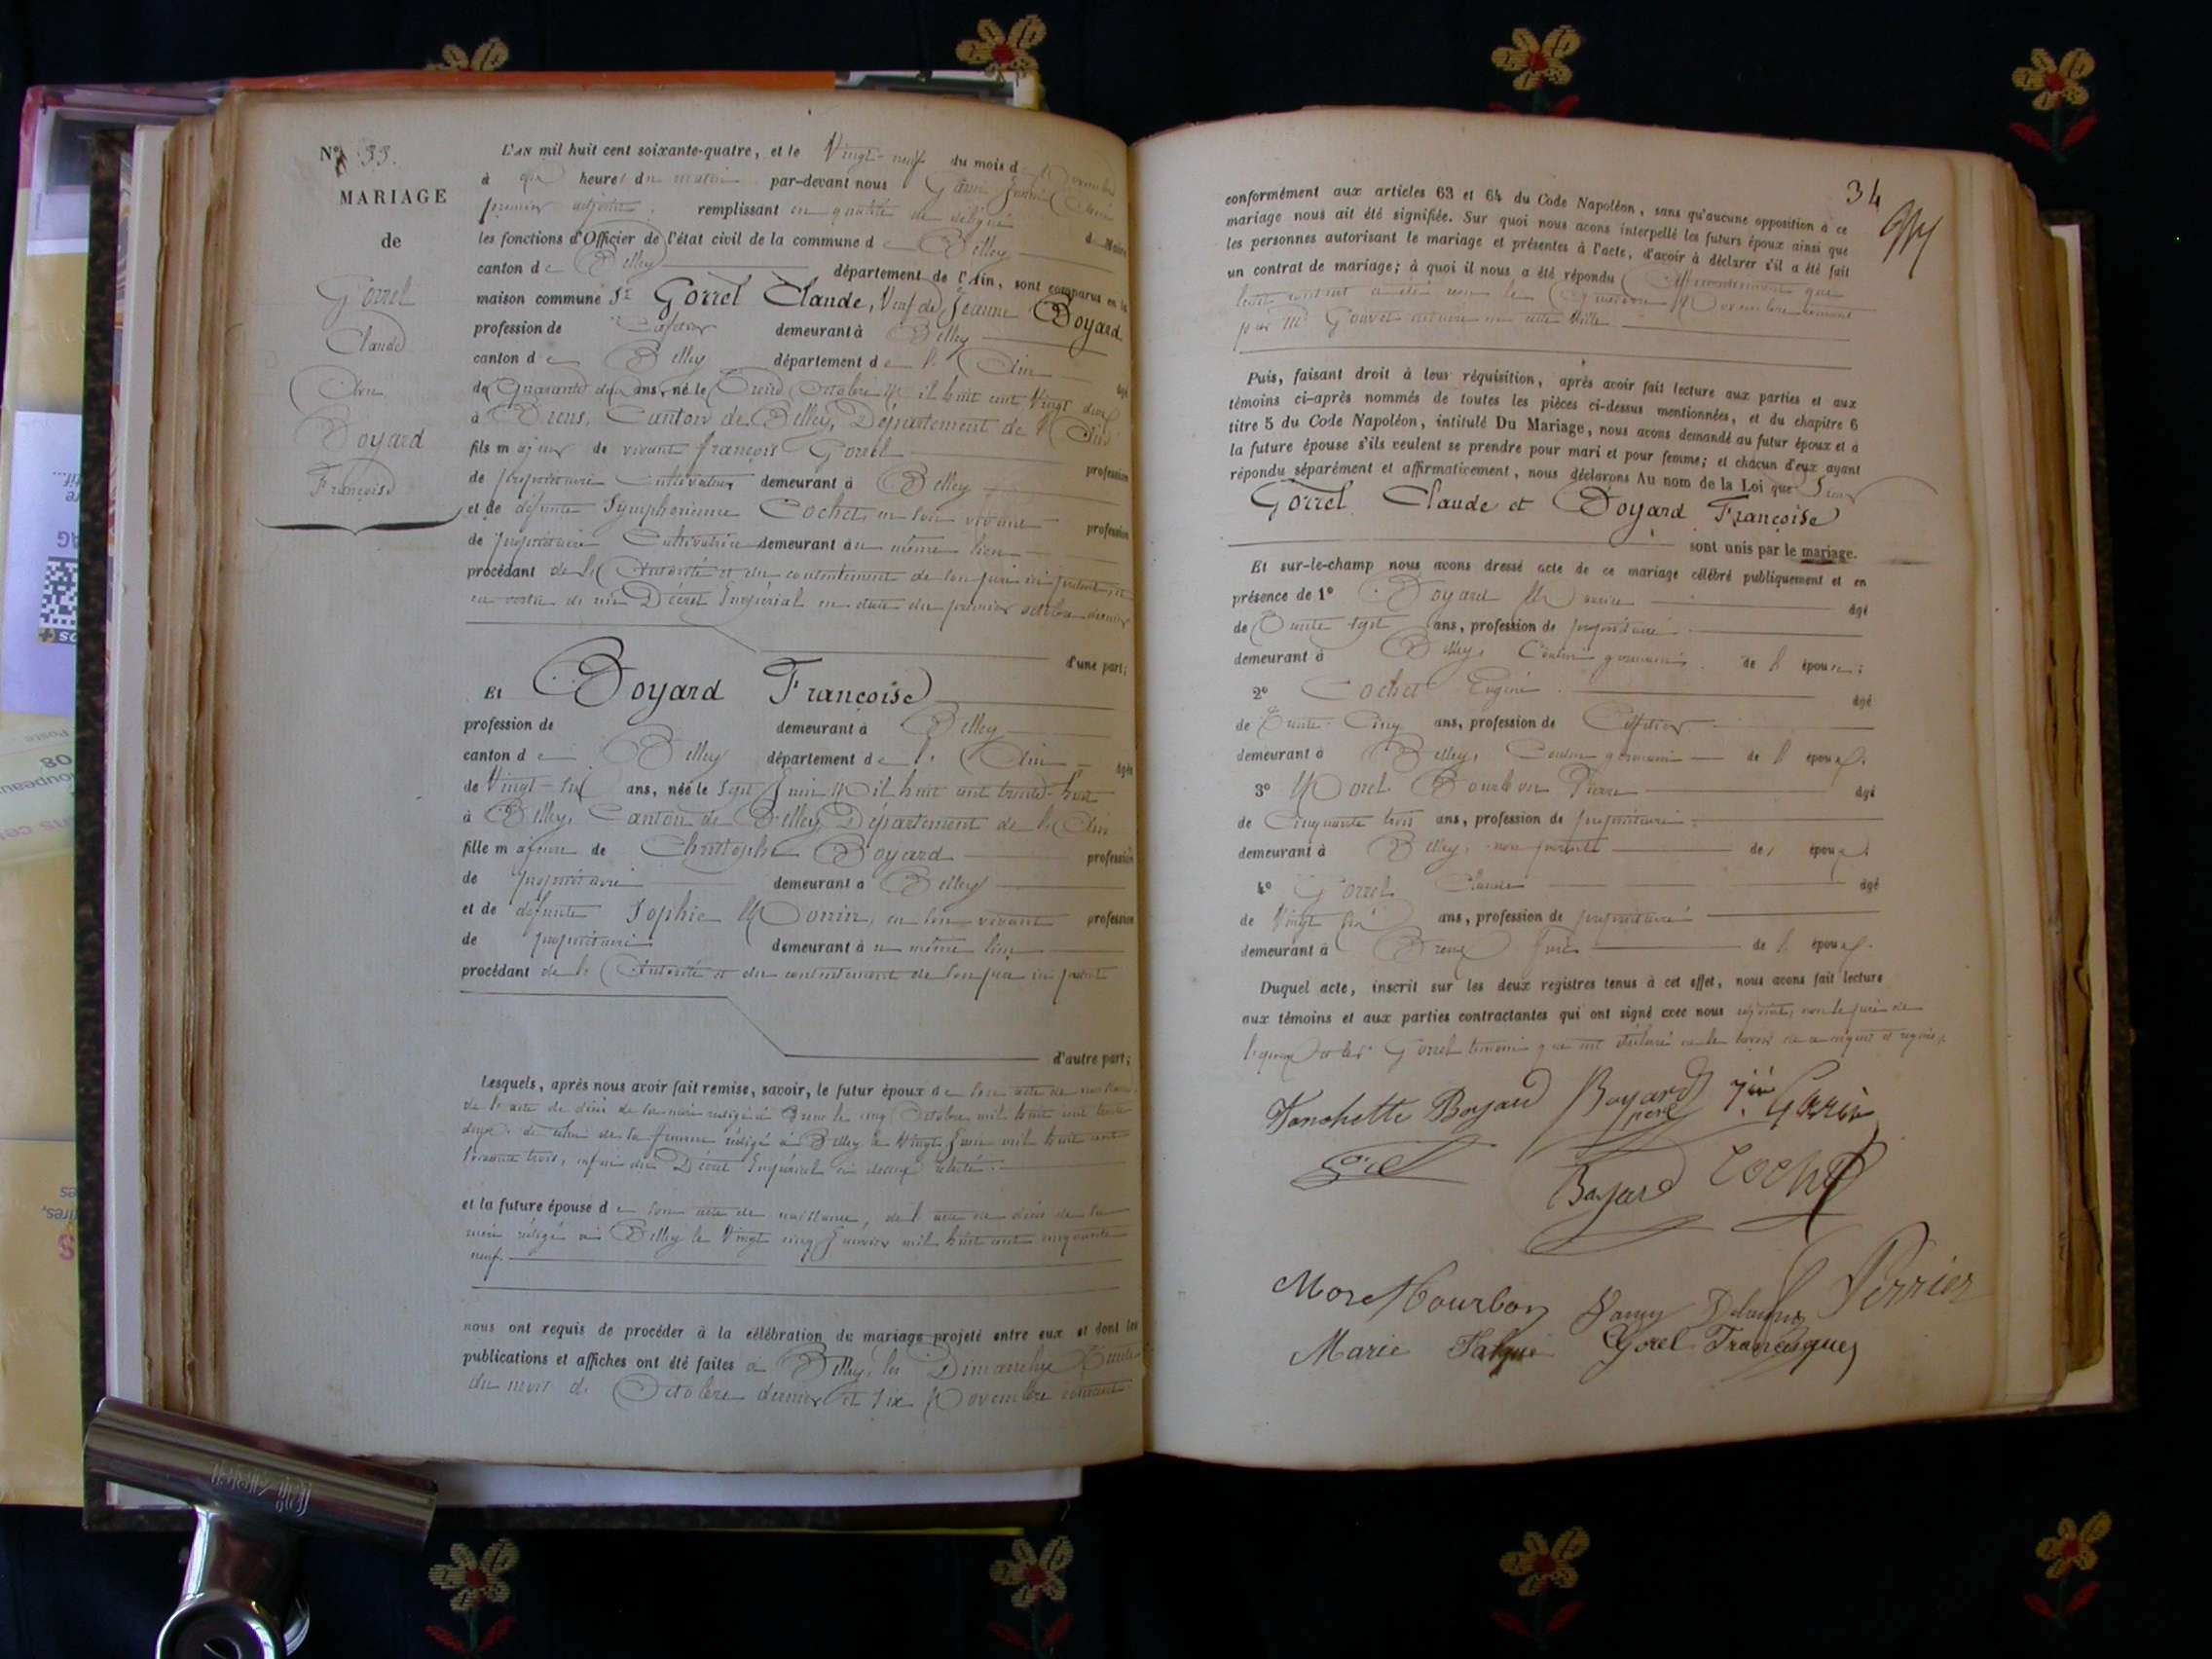 N° 33.
MARIAGE
de
Gorrel
Claude
Avec
Boyard
Françoise
L'AN mil huit cent soixante-quatre, et le Vingt-neuf du mois de Novembre
à dix heures du matin par-devant nous
premier adjoint remplissant en qualité de délégué du Maire
les fonctions d'Officier de l'état civil de la commune de Belley
canton de Belley département de l'Ain, sont comparus en la
maison commune Sr Gorrel Claude, Veuf de Jeanne Boyard
profession de Cafetier demeurant à Belley
canton de Belley département de l'Ain âgé
de Quarante deux ans, né le Octobre Mil huit cent Vingt deux
à Brens, Canton de Belley, Département de l'Ain
fils majeur de vivant françois Gorrel profession
de propriétaire Cultivateur demeurant à Belley
et de défunte Symphorienne Cochet, en son vivant profession
de propriétaire Cultivatrice demeurant au même lieu
procédant de l'Autorité et du consentement de son père ici présent, et
en vertu de un Décret Impérial en date du premier octobre dernier
d'une part;
Et Boyard Françoise
profession de demeurant à Belley
canton de Belley département de l'Ain âgée
de Vingt-six ans, née le Sept Juin Mil huit cent trente-huit
à Belley, Canton de Belley, Département de l'Ain
fille majeure de Christophe Boyard profession
de propriétaire demeurant à Belley
et de défunte Sophie Monin, en son vivant profession
de propriétaire demeurant à au même lieu
procédant de l'Autorité et du consentement de son père ici présent
d'autre part;
Lesquels, après nous avoir fait remise, savoir, le futur époux de son acte de naissance
de l'acte de décès de sa mère rédigé à Brens le cinq Octobre mil huit cent trente
deux, de celui de sa femme rédigé à Belley le Vingt Juin mil huit cent
soixante trois, enfin du Décret Impérial ci dessus relaté.
et la future épouse de son acte de naissance, de l'acte de décès de sa
mère rédigé à Belley le Vingt cinq Janvier mil huit cent cinquante
neuf
nous ont requis de procéder à la célébration du mariage projeté entre eux et dont les
publications et affiches ont été faites à Belley, les Dimanches Trente
du mois d'Octobre dernier et six Novembre courant
34
conformément aux articles 63 et 64 du Code Napoléon, sans qu'aucune opposition à ce
mariage nous ait été signifiée. Sur quoi nous avons interpellé les futurs époux ainsi que
les personnes autorisant le mariage et présentes à l'acte, d'avoir à déclarer s'il a été fait
un contrat de mariage; à quoi il nous a été répondu Affirmativement que
leur contrat a été reçu le Novembre courant
par Me Gouvet notaire en cette Ville
Puis, faisant droit à leur réquisition, après avoir fait lecture aux parties et aux
témoins ci-après nommés de toutes les pièces ci-dessus mentionnées, et du chapitre 6
titre 5 du Code Napoléon, intitulé Du Mariage, nous avons demandé au futur époux et à
la future épouse s'ils veulent se prendre pour mari et pour femme; et chacun d'eux ayant
répondu séparément et affirmativement, nous déclarons Au nom de la Loi que
Gorrel Claude et Boyard Françoise
sont unis par le mariage.
Et sur-le-champ nous avons dressé acte de ce mariage célébré publiquement et en
présence de 1° Boyard Maurice âgé
de Trente sept ans, profession de propriétaire
demeurant à Belley, Cousin germain de l'épouse;
2° Cochet Eugène âgé
de Trente-Cinq ans, profession de Cafetier
demeurant à Belley, Cousin germain de l'époux.
3° Morel Bourbon Pierre âgé
de Cinquante trois ans, profession de propriétaire
demeurant à Belley, non parent des époux.
4° Gorrel Claude âgé
de Vingt six ans, profession de propriétaire
demeurant à Brens frère de l'époux.
Duquel acte, inscrit sur les deux registres tenus à cet effet, nous avons fait lecture
aux témoins et aux parties contractantes qui ont signé avec nous non le père de
l'époux et le sr Gorrel témoin qui ont déclaré ne le savoir de ce enquis et requis.
Fanchette Boyard Boyard père Garin
Gorrel
Boyard Cochet
Morel Bourbon Fanny Delaunay Perrier
Marie Gorel Francisque